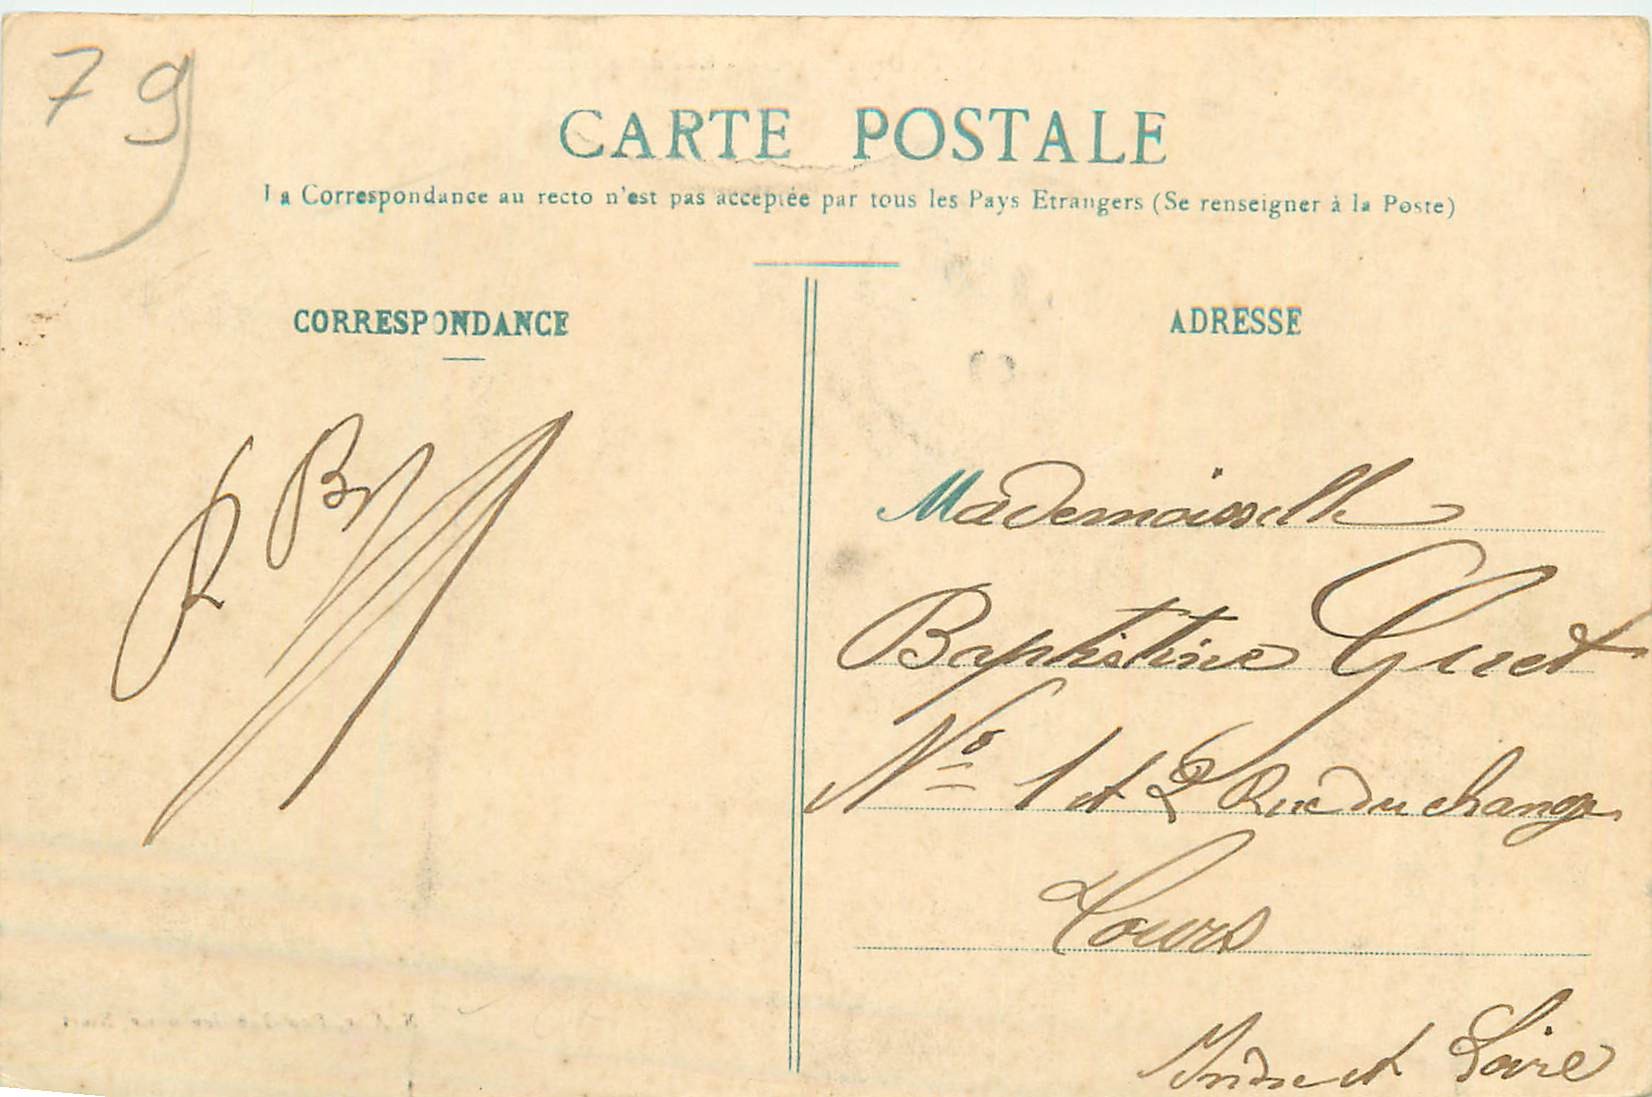 79
CARTE POSTALE
La Correspondance au recto n'est pas acceptée par tous les Pays Etrangers (Se renseigner à la Poste)
CORRESPONDANCE
ADRESSE
R B
Mademoiselle
Baptistine Guet
Nº 1 et 2 Rue du change
Tours
Indre et Loire